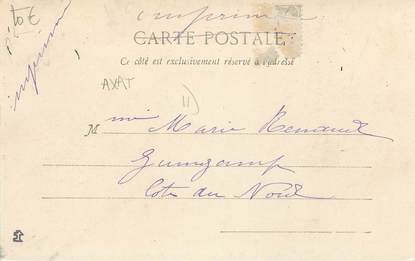 10 €
imprimé
imprimé
CARTE POSTALE
Ce côté est exclusivement réservé à l'adresse
AXAT
11)
M me Marie Renault
Guingamp
Cotes du Nord